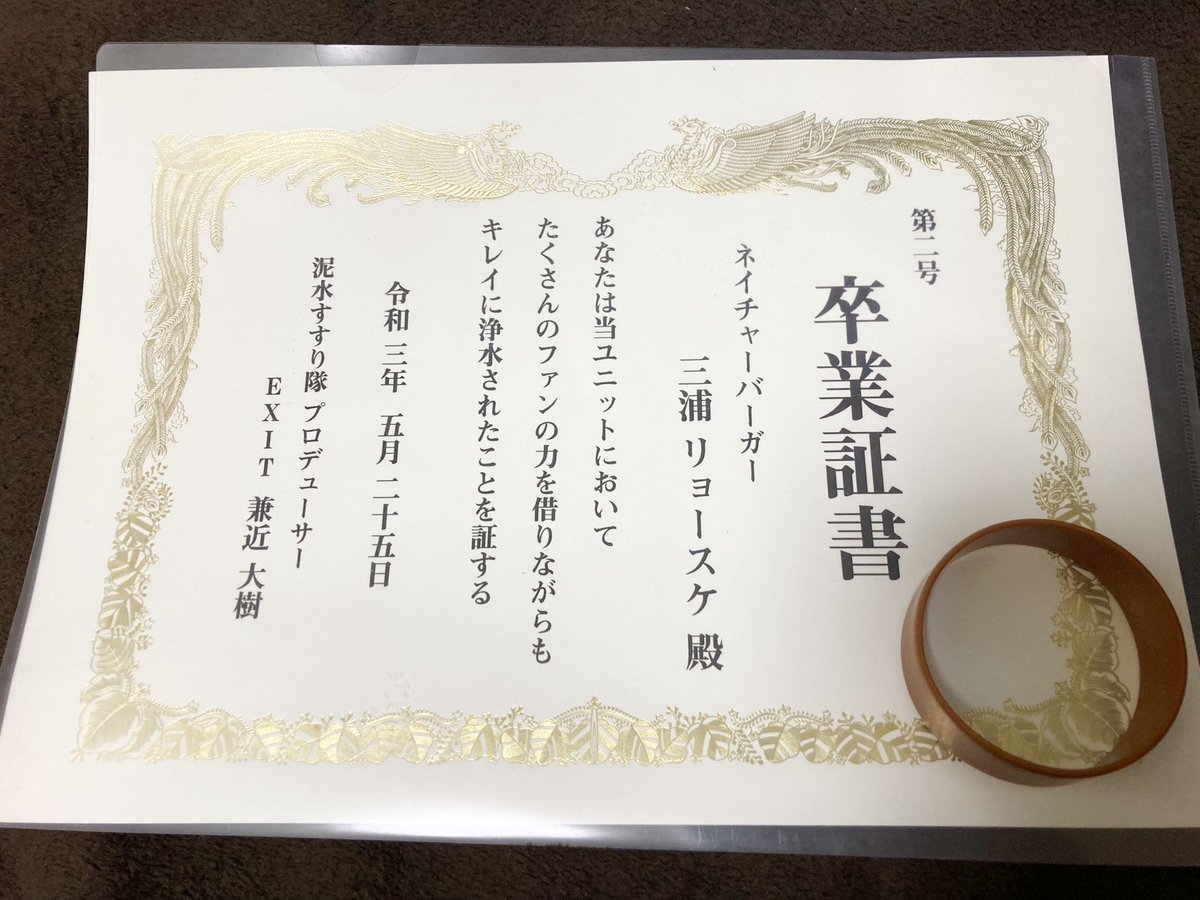 第二号
卒業証書
ネイチャーバーガー
三浦 リョースケ 殿
あなたは当ユニットにおいて
たくさんのファンの力を借りながらも
キレイに浄水されたことを証する
令和 三年 五月 二十五日
泥水すすり隊 プロデューサー
EXIT 兼近 大樹